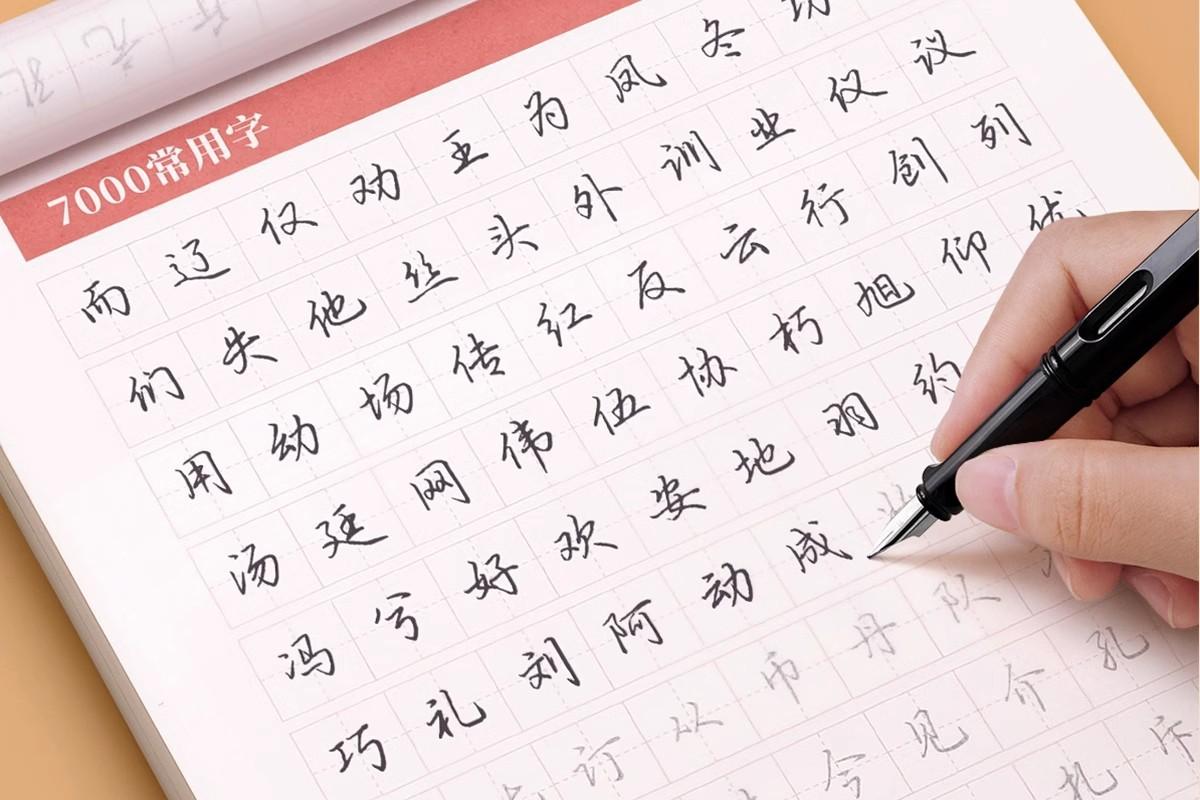 7000常用字
而辽仅劝王为凤冬
们失他丝头外训业仪议
用幼场传红反云行创列
汤廷网伟伍协朽旭仰优
冯兮好欢安地羽约
巧礼刘阿动成
订从币丹队
今见介孔
扎